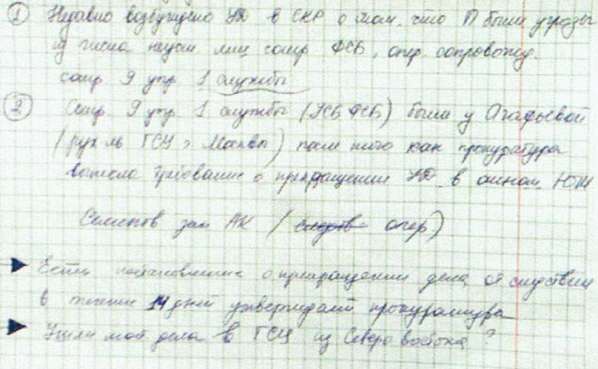 ① Недавно возбуждено УД в СКР о том, что П были угрозы
из числа неуст лиц сотр ФСБ, опер. сопровожд.
сотр 9 упр 1 службы
② Сотр. 9 упр 1 службы (УСБ ФСБ) были у Агафьевой
(рук ль ГСУ г. Москвы) после того как прокуратура
вынесла требование о прекращении УД в отнош.
Семенов зам АК ( опер)
Есть постановление о прекращении дела от следствия
в течении 14 дней утверждает прокуратура
Ушли мои дела в ГСУ из Северо востока?